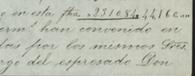 en esta fha 231084,4416c
han convenido en
por los mismos Sres
del espresado Don